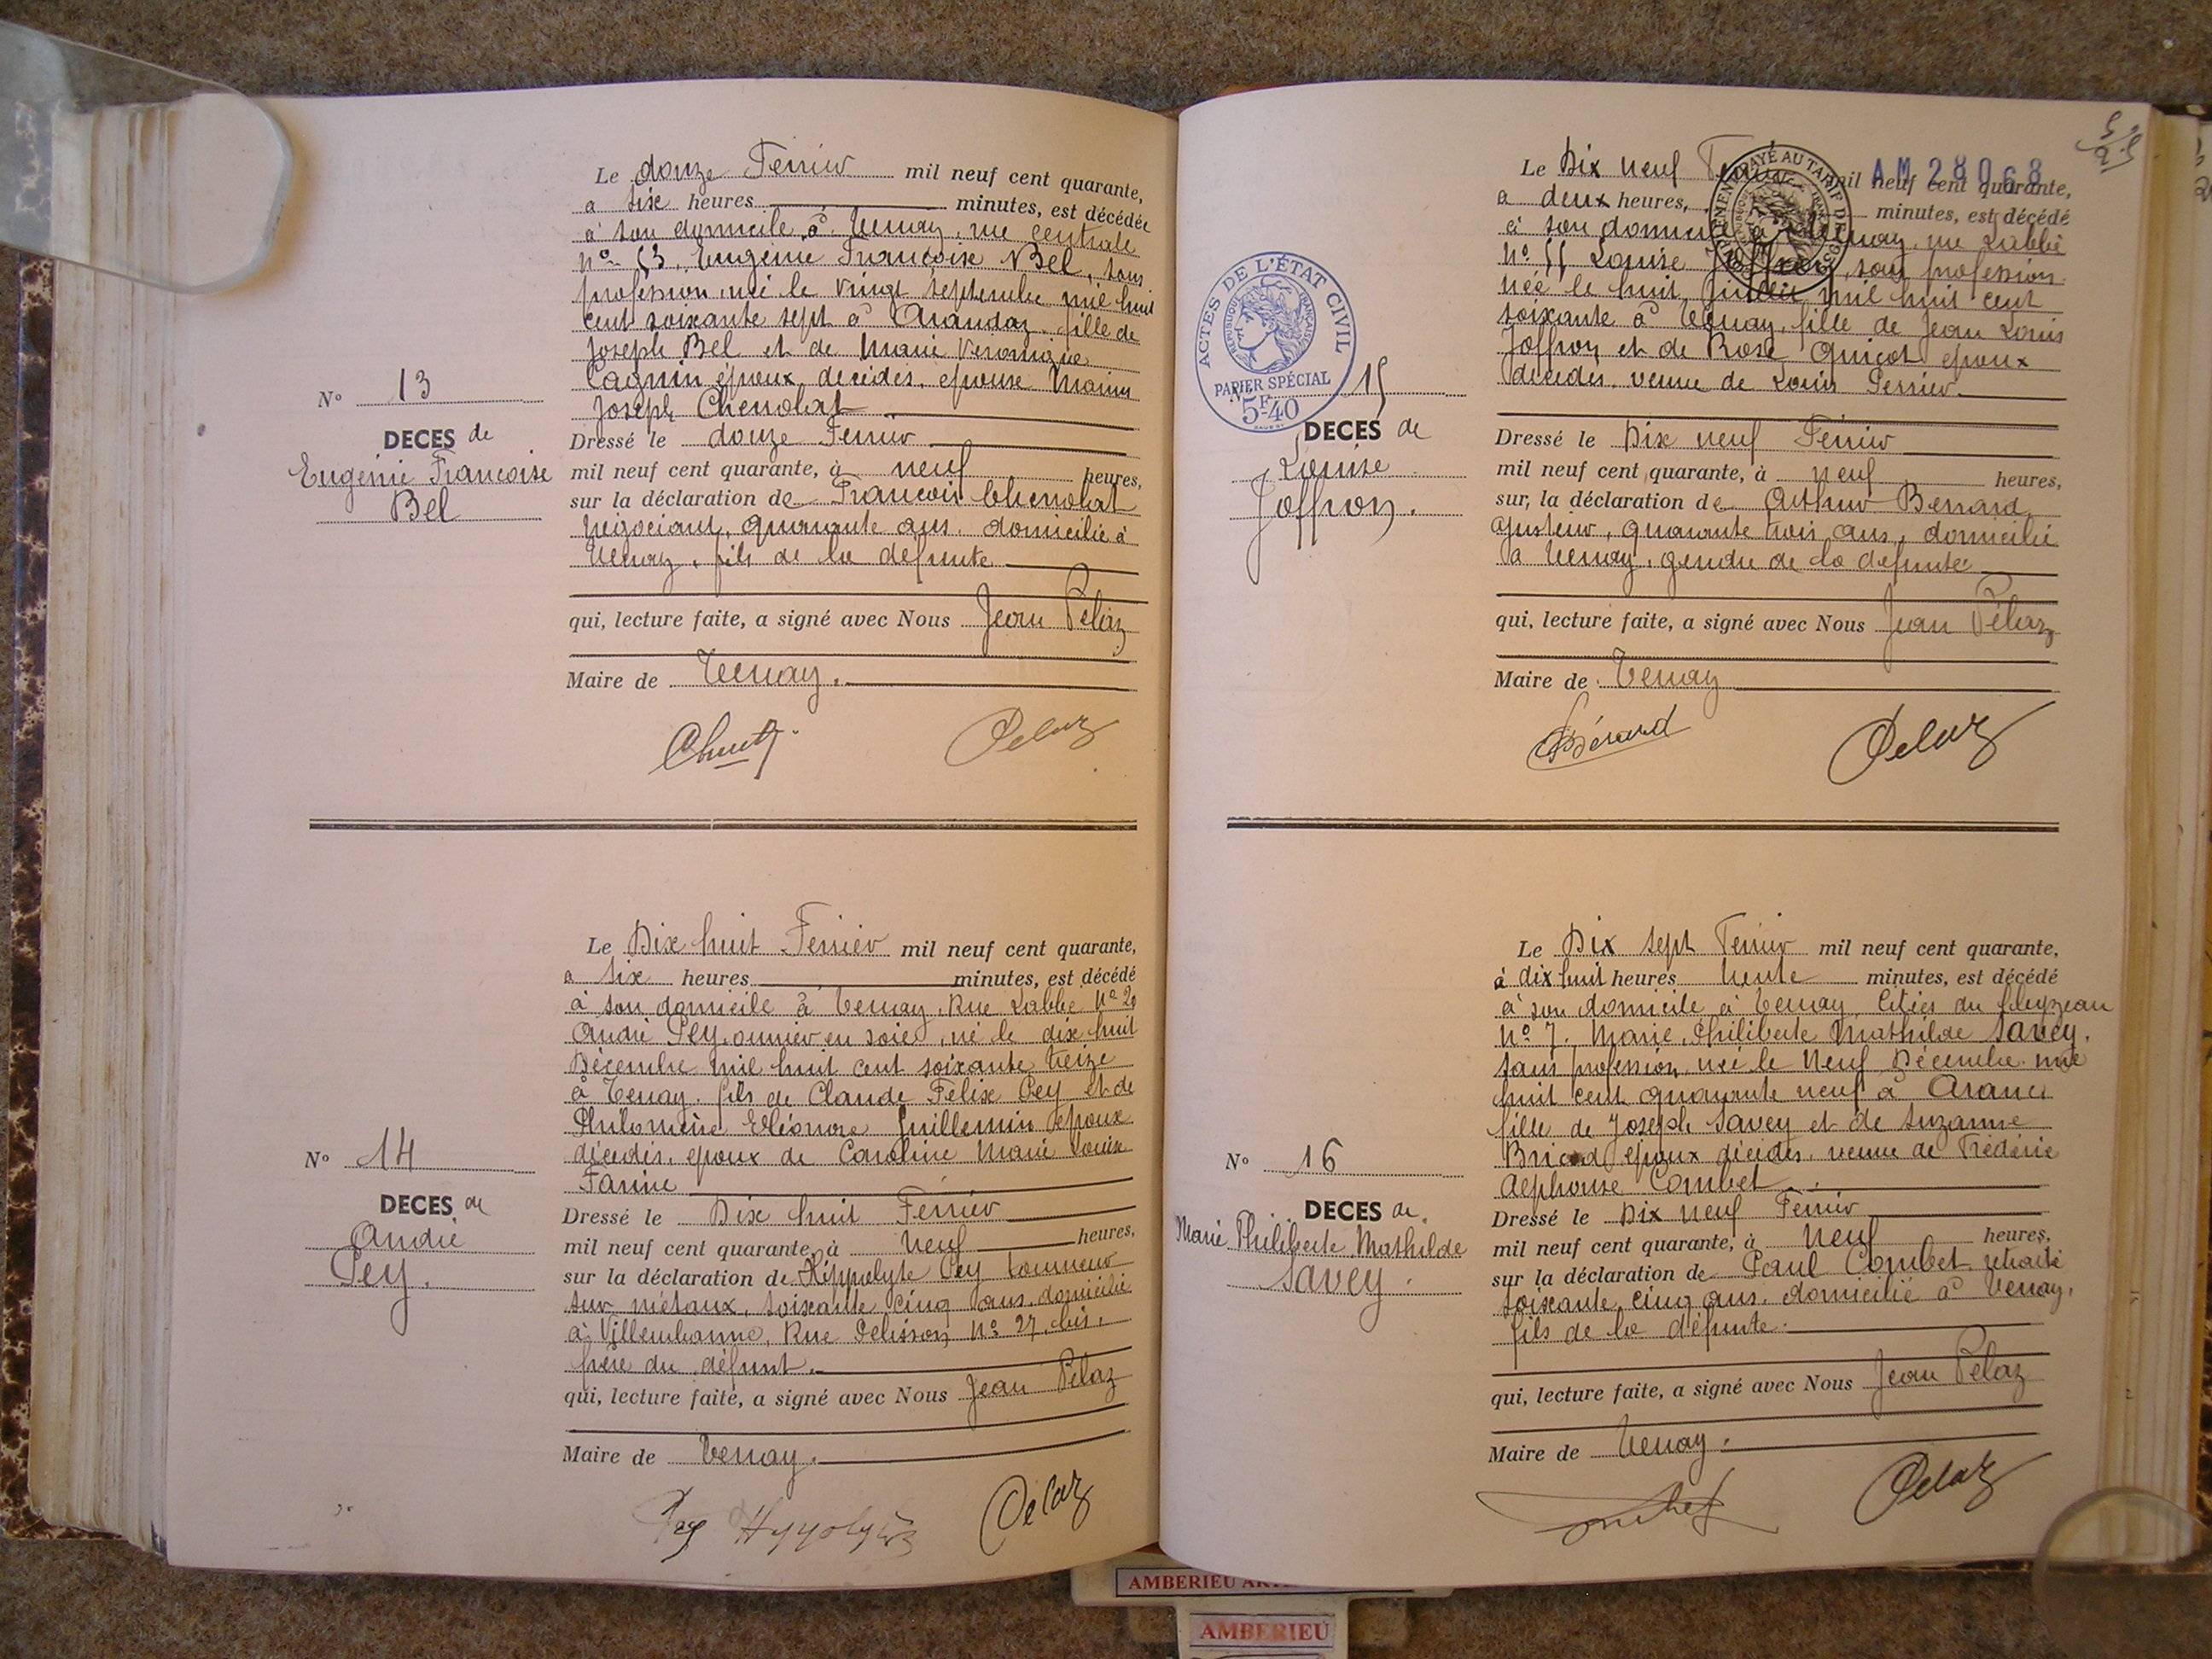 Le douze Fevrier mil neuf cent quarante,
a six heures minutes, est décédée
à son domicile à Tenay, rue centrale
n° 53, Eugénie Francoise Bel, sans
profession, née le vingt septembre mil huit
cent soixante sept à Arandaz, fille de
Joseph Bel et de Marie Veronique
Cagnin époux décédés, epouse Marius
Joseph Chenolat
N° 13
DECES de
Eugénie Francoise
Bel
Dressé le douze Fevrier
mil neuf cent quarante, à neuf heures,
sur la déclaration de Francois Chenolat
négociant, quarante ans, domicilié à
Tenay, fils de la défunte
qui, lecture faite, a signé avec Nous Jean Pélaz
Maire de Tenay.
Pelaz
Le Dix huit Fevrier mil neuf cent quarante,
a six heures minutes, est décédé
à son domicile à Tenay, Rue Labbé N° 20
André Pey, ouvrier en soie, né le dix huit
Décembre mil huit cent soixante treize
à Tenay, fils de Claude Félix Pey et de
Philomène Eléonore Guillemin époux
décédés, epoux de Caroline Marie Louise
Farine
N° 14
DECES de
André
Pey.
Dressé le Dix huit Fevrier
mil neuf cent quarante, à neuf heures,
sur la déclaration de Hippolyte Pey tourneur
sur métaux, soixante cinq ans, domicilié
à Villeurbanne, Rue Pelisson N° 27 bis,
frère du défunt.
qui, lecture faite, a signé avec Nous Jean Pélaz
Maire de Tenay.
Pey Hyppolyte Pelaz
AM 28068
Le Dix neuf mil neuf cent quarante,
a deux heures, minutes, est décédé
à son domicile à Tenay, rue Labbé
N° 55 Louise Joffroy, sans profession
née le huit Juillet mil huit cent
soixante à Tenay, fille de Jean Louis
Joffroy et de Rose Quicot epoux
décédés, veuve de Louis Perrier.
ACTES DE L'ÉTAT CIVIL
RÉPUBLIQUE FRANÇAISE
PAPIER SPÉCIAL
5F40
N° 15
DECES de
Louise
Joffroy.
Dressé le Dix neuf Fevrier
mil neuf cent quarante, à neuf heures,
sur la déclaration de Arthur Berrard
ajusteur, quarante trois ans, domicilié
à Tenay, gendre de la defunte
qui, lecture faite, a signé avec Nous Jean Pélaz
Maire de Tenay
Bérard Pelaz
Le Dix sept Fevrier mil neuf cent quarante,
à dix huit heures trente minutes, est décédé
à son domicile à Tenay, Cités du Cluzeau
N° 7. Marie Philiberte Mathilde Savey,
sans profession, née le Neuf Décembre mil
huit cent quarante neuf à Aranc,
fille de Joseph Savey et de Suzanne
époux décédés, veuve de Fréderic
Alphonse Combet
N° 16
DECES de
Marie Philiberte Mathilde
Savey.
Dressé le Dix neuf Fevrier
mil neuf cent quarante, à neuf heures,
sur la déclaration de Paul Combet, retraité
soixante cinq ans, domicilié à Tenay,
fils de la défunte.
qui, lecture faite, a signé avec Nous Jean Pelaz
Maire de Tenay.
Pelaz
AMBERIEU
AMBERIEU